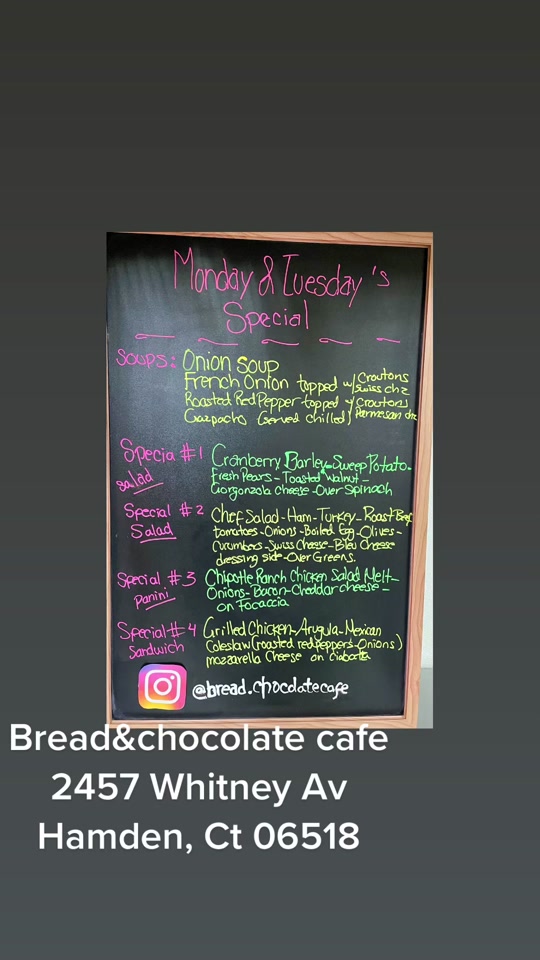 Monday & Tuesday's
Special
Soups: Onion Soup
French Onion topped w/ Croutons Swiss chz
Roasted Red Pepper-topped w/ Croutons
Gazpacho (served chilled) Parmesan chz
Specia #1 Cranberry Barley-Sweep Potato-
Salad Fresh Pears-Toasted Walnut-
Gorgonzola cheese-Over Spinach
Special #2 Chef Salad-Ham-Turkey-Roast Beef
Salad tomatoes-Onions-Boiled Egg-Olives-
Cucumbers-Swiss Cheese-Bleu Cheese
dressing side-Over Greens.
Special #3 Chipotle Ranch Chicken Salad Melt-
Panini Onions-Bacon-Cheddar cheese-
on Focaccia
Special #4 Grilled Chicken-Arugula-Mexican
Sandwich Coleslaw (roasted red peppers-Onions)
mozzarella Cheese on Ciabatta
@bread.chocolatecafe
Bread&chocolate cafe
2457 Whitney Av
Hamden, Ct 06518